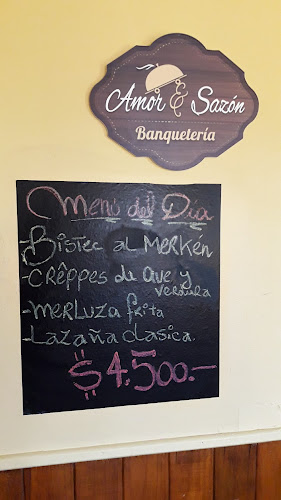 Amor & Sazón
Banquetería
Menú del Día
-Bistec al Merkén
-Crêppes de ave y
verdura
-Merluza frita
-Lazaña clasica.
$4.500.-